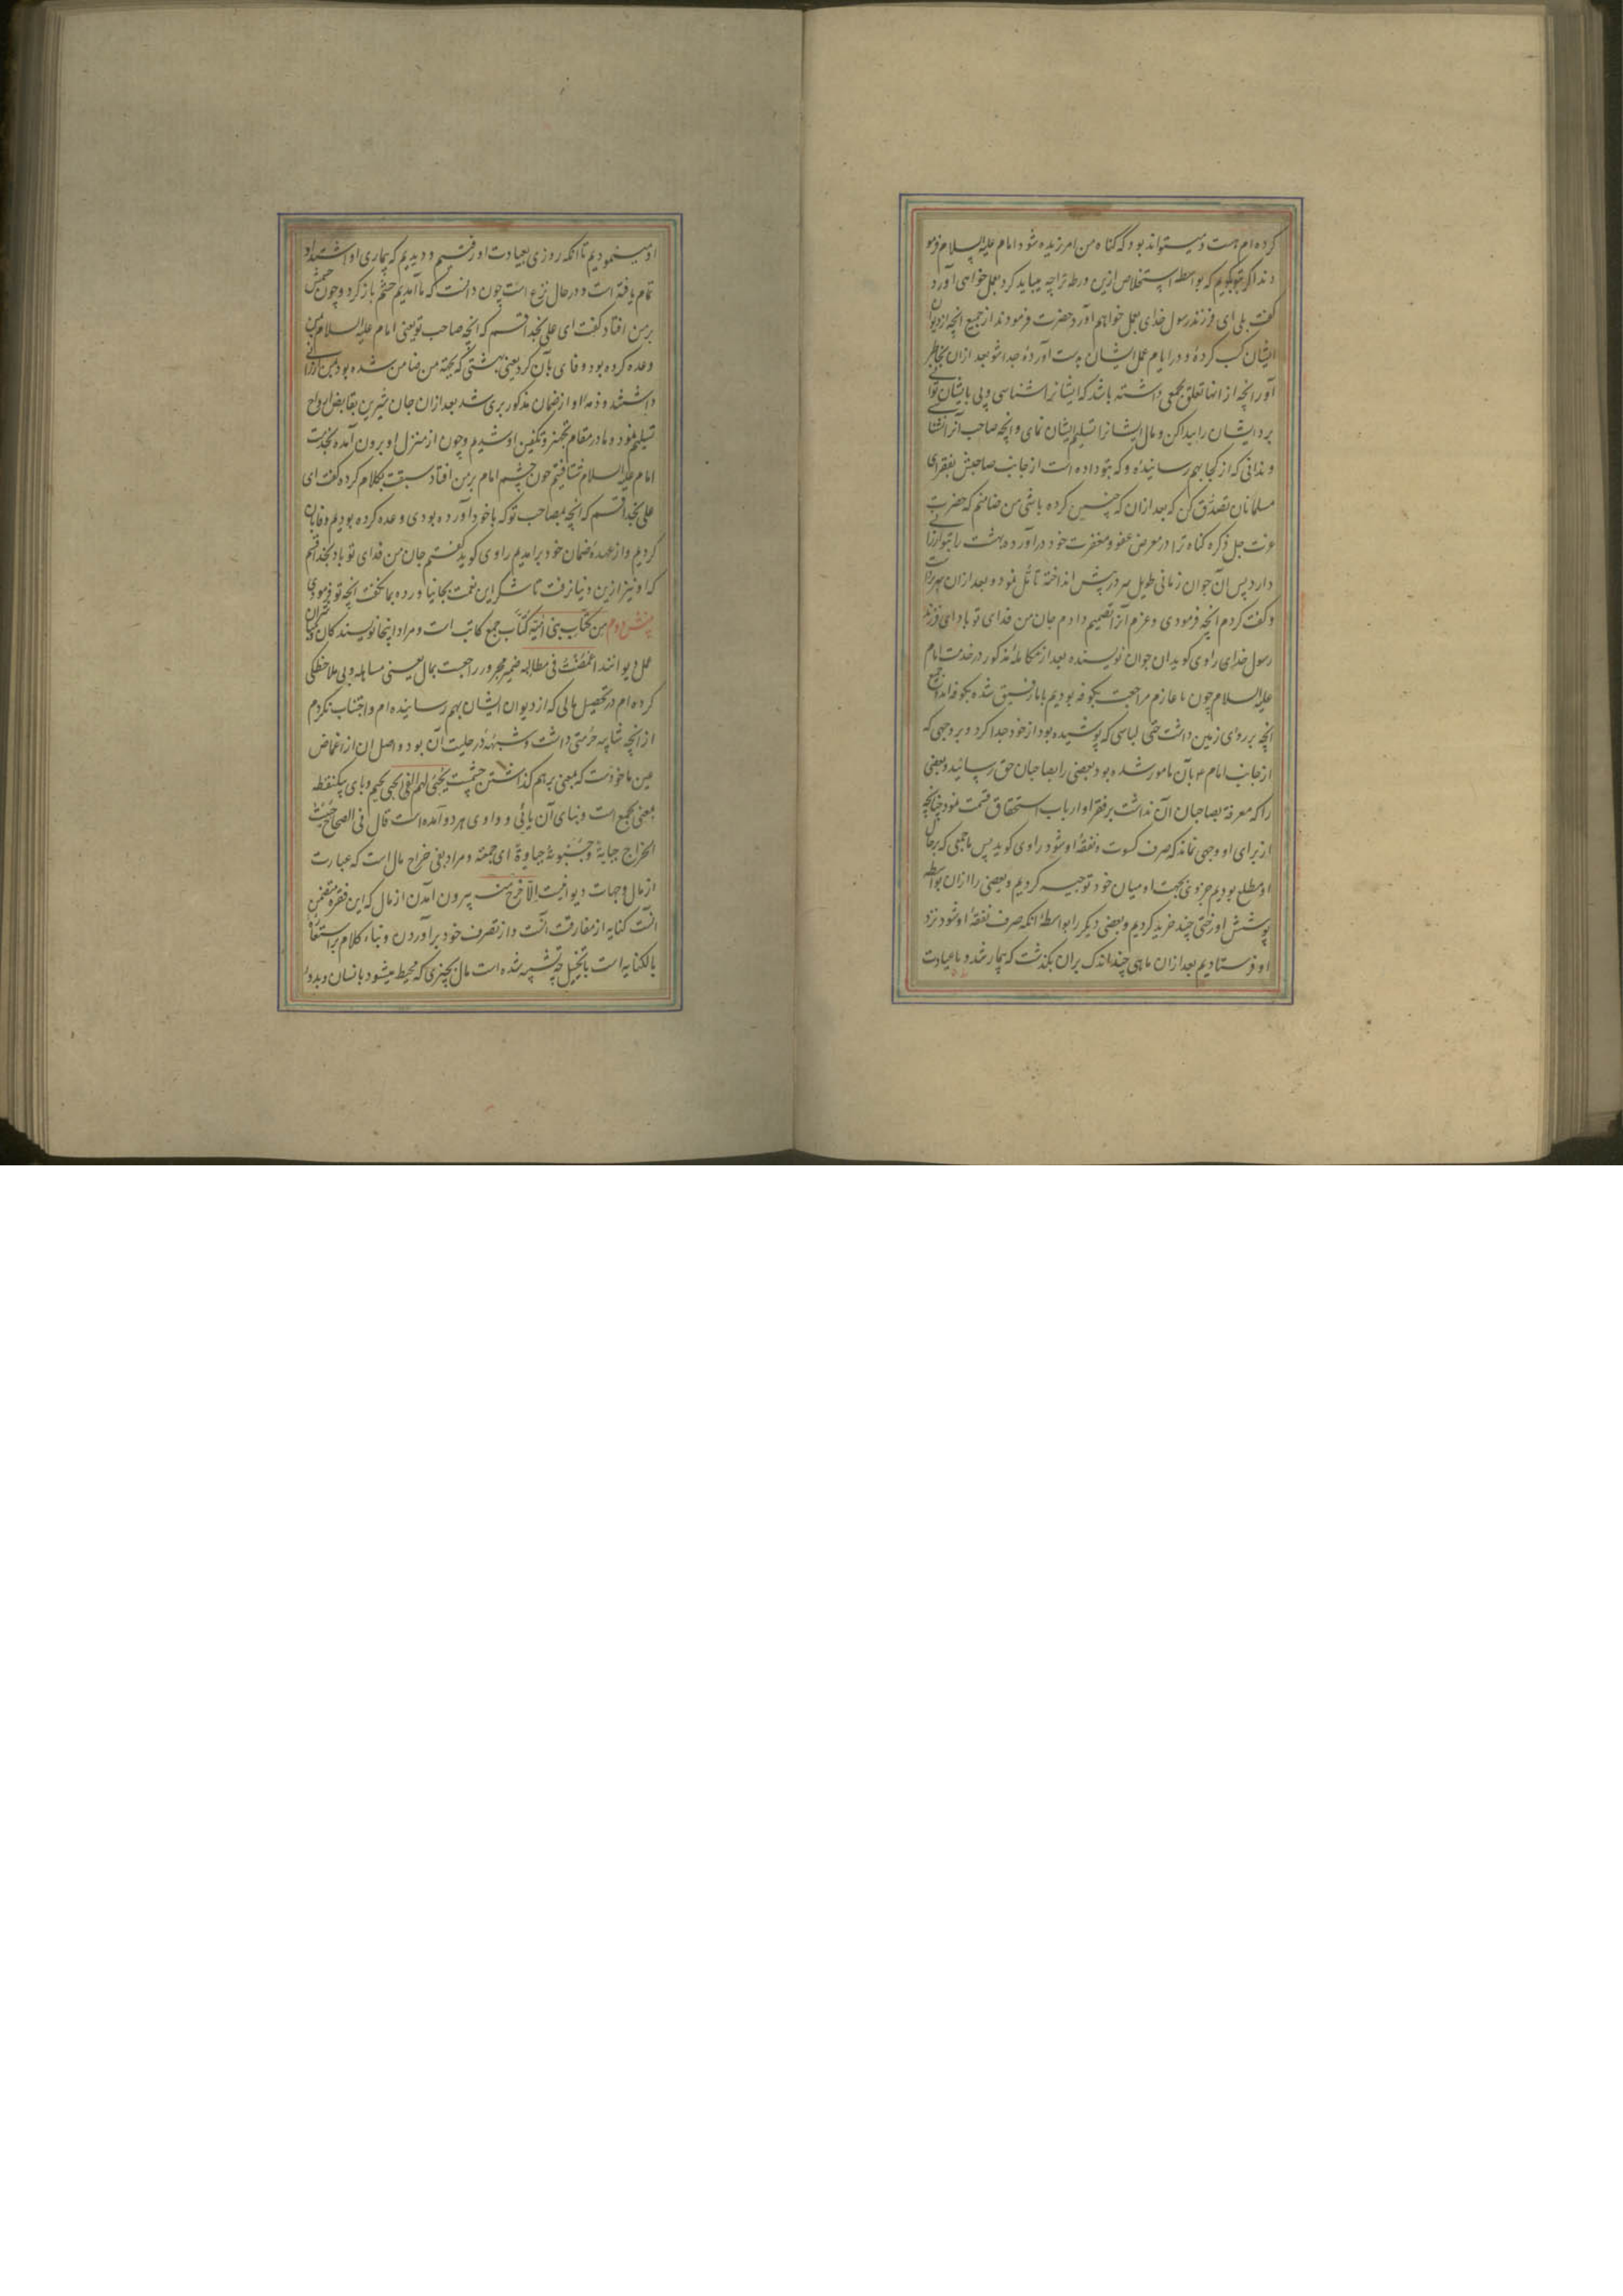 کرده ام هست و میتواند بود که گناه من امرزیده شود امام علیه السلام فرمو
دند اگر بتو بگویم که بواسطه استخلاص ازین ورطه ترا چه میباید کرد بعمل خواهی آورد
گفت بلی ای فرزند رسول خدای بعمل خواهم آورد حضرت فرمودند از جمیع انچه از دیوان
ایشان کسب کردهٔ و در ایام عمل ایشان بدست آوردهٔ جدا شو بعد ازان بخاطر
آور انچه از انها تعلق بجمعی داشته باشد که ایشانرا شناسی و پی بایشان توانی
برد ایشان را پیدا کن و مال ایشانرا تسلیم ایشان نمای و انچه صاحب آنرا نشنا
و ندانی که از کجا بهم رسانیدهٔ و که بتو داده است از جانب صاحبش بفقرای
مسلمانان تصدق کن که بعد ازان که چنین کرده باشی من ضامنم که حضرت
عزت جل ذکره گناه ترا در معرض عفو و مغفرت خود درآورده بهشت را بتو ارزانی
دارد پس آن جوان زمانی طویل سر در پیش انداخته تأمل نمود و بعد ازان سر برداشت
و گفت کردم انچه فرمودی و عزم آنرا تصمیم دادم جان من فدای تو باد ای فرزند
رسول خدای راوی گوید ان جوان نویسنده بعد از مکالمهٔ مذکور در خدمت امام
علیه السلام چون ما عازم مراجعت بکوفه بودیم با ما رفیق شده بکوفه آمد از جمیع
انچه بر روی زمین داشت حتی لباسی که پوشیده بود از خود جدا کرد و بر وجهی که
از جانب امام ع بآن مامور شده بود بعضی را بصاحبان حق رسانید و بعضی
را که معرفة بصاحبان آن نداشت بر فقرا و ارباب استحقاق قسمت نمود چنانچه
از برای او وجهی نماند که صرف کسوت و نفقهٔ او شود راوی گوید پس ما جمعی که بر حال
او مطلع بودیم جزوی بجهت او میان خود توجیه کردیم و بعضی را ازان بواسطه
پوشش او رختی چند خرید کردیم و بعضی دیگر را بواسطهٔ انکه صرف نفقهٔ او شود نزد
او فرستادیم بعد ازان ماهی چند اندک بران بگذشت که بیمار شد و ما عیادت
او مینمودیم تا انکه روزی بعیادت او رفتیم و دیدیم که بیماری او اشتداد
تمام یافته است و در حال نزع است چون دانست که ما آمدیم چشم باز کرد و چون چشمش
بر من افتاد گفت ای علی بخدا قسم که انچه صاحب تو یعنی امام علیه السلام بمن
وعده کرده بود وفای بآن کرد یعنی بهشتی که بجهة من ضامن شده بود بمن ارزانی
داشتند و ذمه او از ضمان مذکور بری شد بعد ازان جان شیرین بقابض ارواح
تسلیم نمود و ما در مقام تجهیز و تکفین او شدیم و چون از منزل او برون آمده بخدمت
امام علیه السلام شتافتیم چون چشم امام بر من افتاد سبقت بکلام کرده گفت ای
علی بخدا قسم که انچه بصاحب تو که با خود آورده بودی وعده کرده بودیم وفا بآن
کردیم و از عهدهٔ ضمان خود برامدیم راوی گوید گفتم جان من فدای تو باد بخدا قسم
که او نیز ازین دنیا نرفت تا شکر این نعمت بجا نیاورده بما نگفت انچه تو فرمودی
من کتاب بنی امیة کتاب جمع کاتب است و مراد اینجا نویسندگان
عمل دیوانند اغمضت فی مطالبه ضمیر مجرور راجعست بمال یعنی مساهله و بی ملاحظگی
کرده ام در تحصیل مالی که از دیوان ایشان بهم رسانیده ام و اجتناب نکردم
از انچه شایبه حرمتی داشت و شبههٔ در حلیت آن بود و اصل ان از اغماض
عین ماخوذست که بمعنی بر هم گذاشتن چشمست یجبی لهم الفی یجبی بجیم و بای یکنقطه
بمعنی یجمع است و بنای آن یائی و واوی هر دو آمده است قال فی الصحاح جبیت
الخراج جبایة و جبوته جباوة ای جمعته و مراد بفی خراج مال است که عبارت
از مال و جهات دیوانیست الا خرج منه بیرون آمدن از مال که این فقره متضمن
انست کنایه از مفارقت انست و از تصرف خود برآوردن و بناء کلام بر استعاره
بالکنایه است با تخییل چه تشبیه شده است مال بچیزی که محیط میشود بانسان و بدور